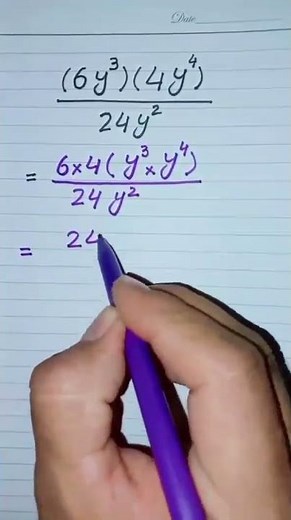 Date
(6y³)(4y⁴)
24y²
= 6×4(y³×y⁴)
24 y²
= 24